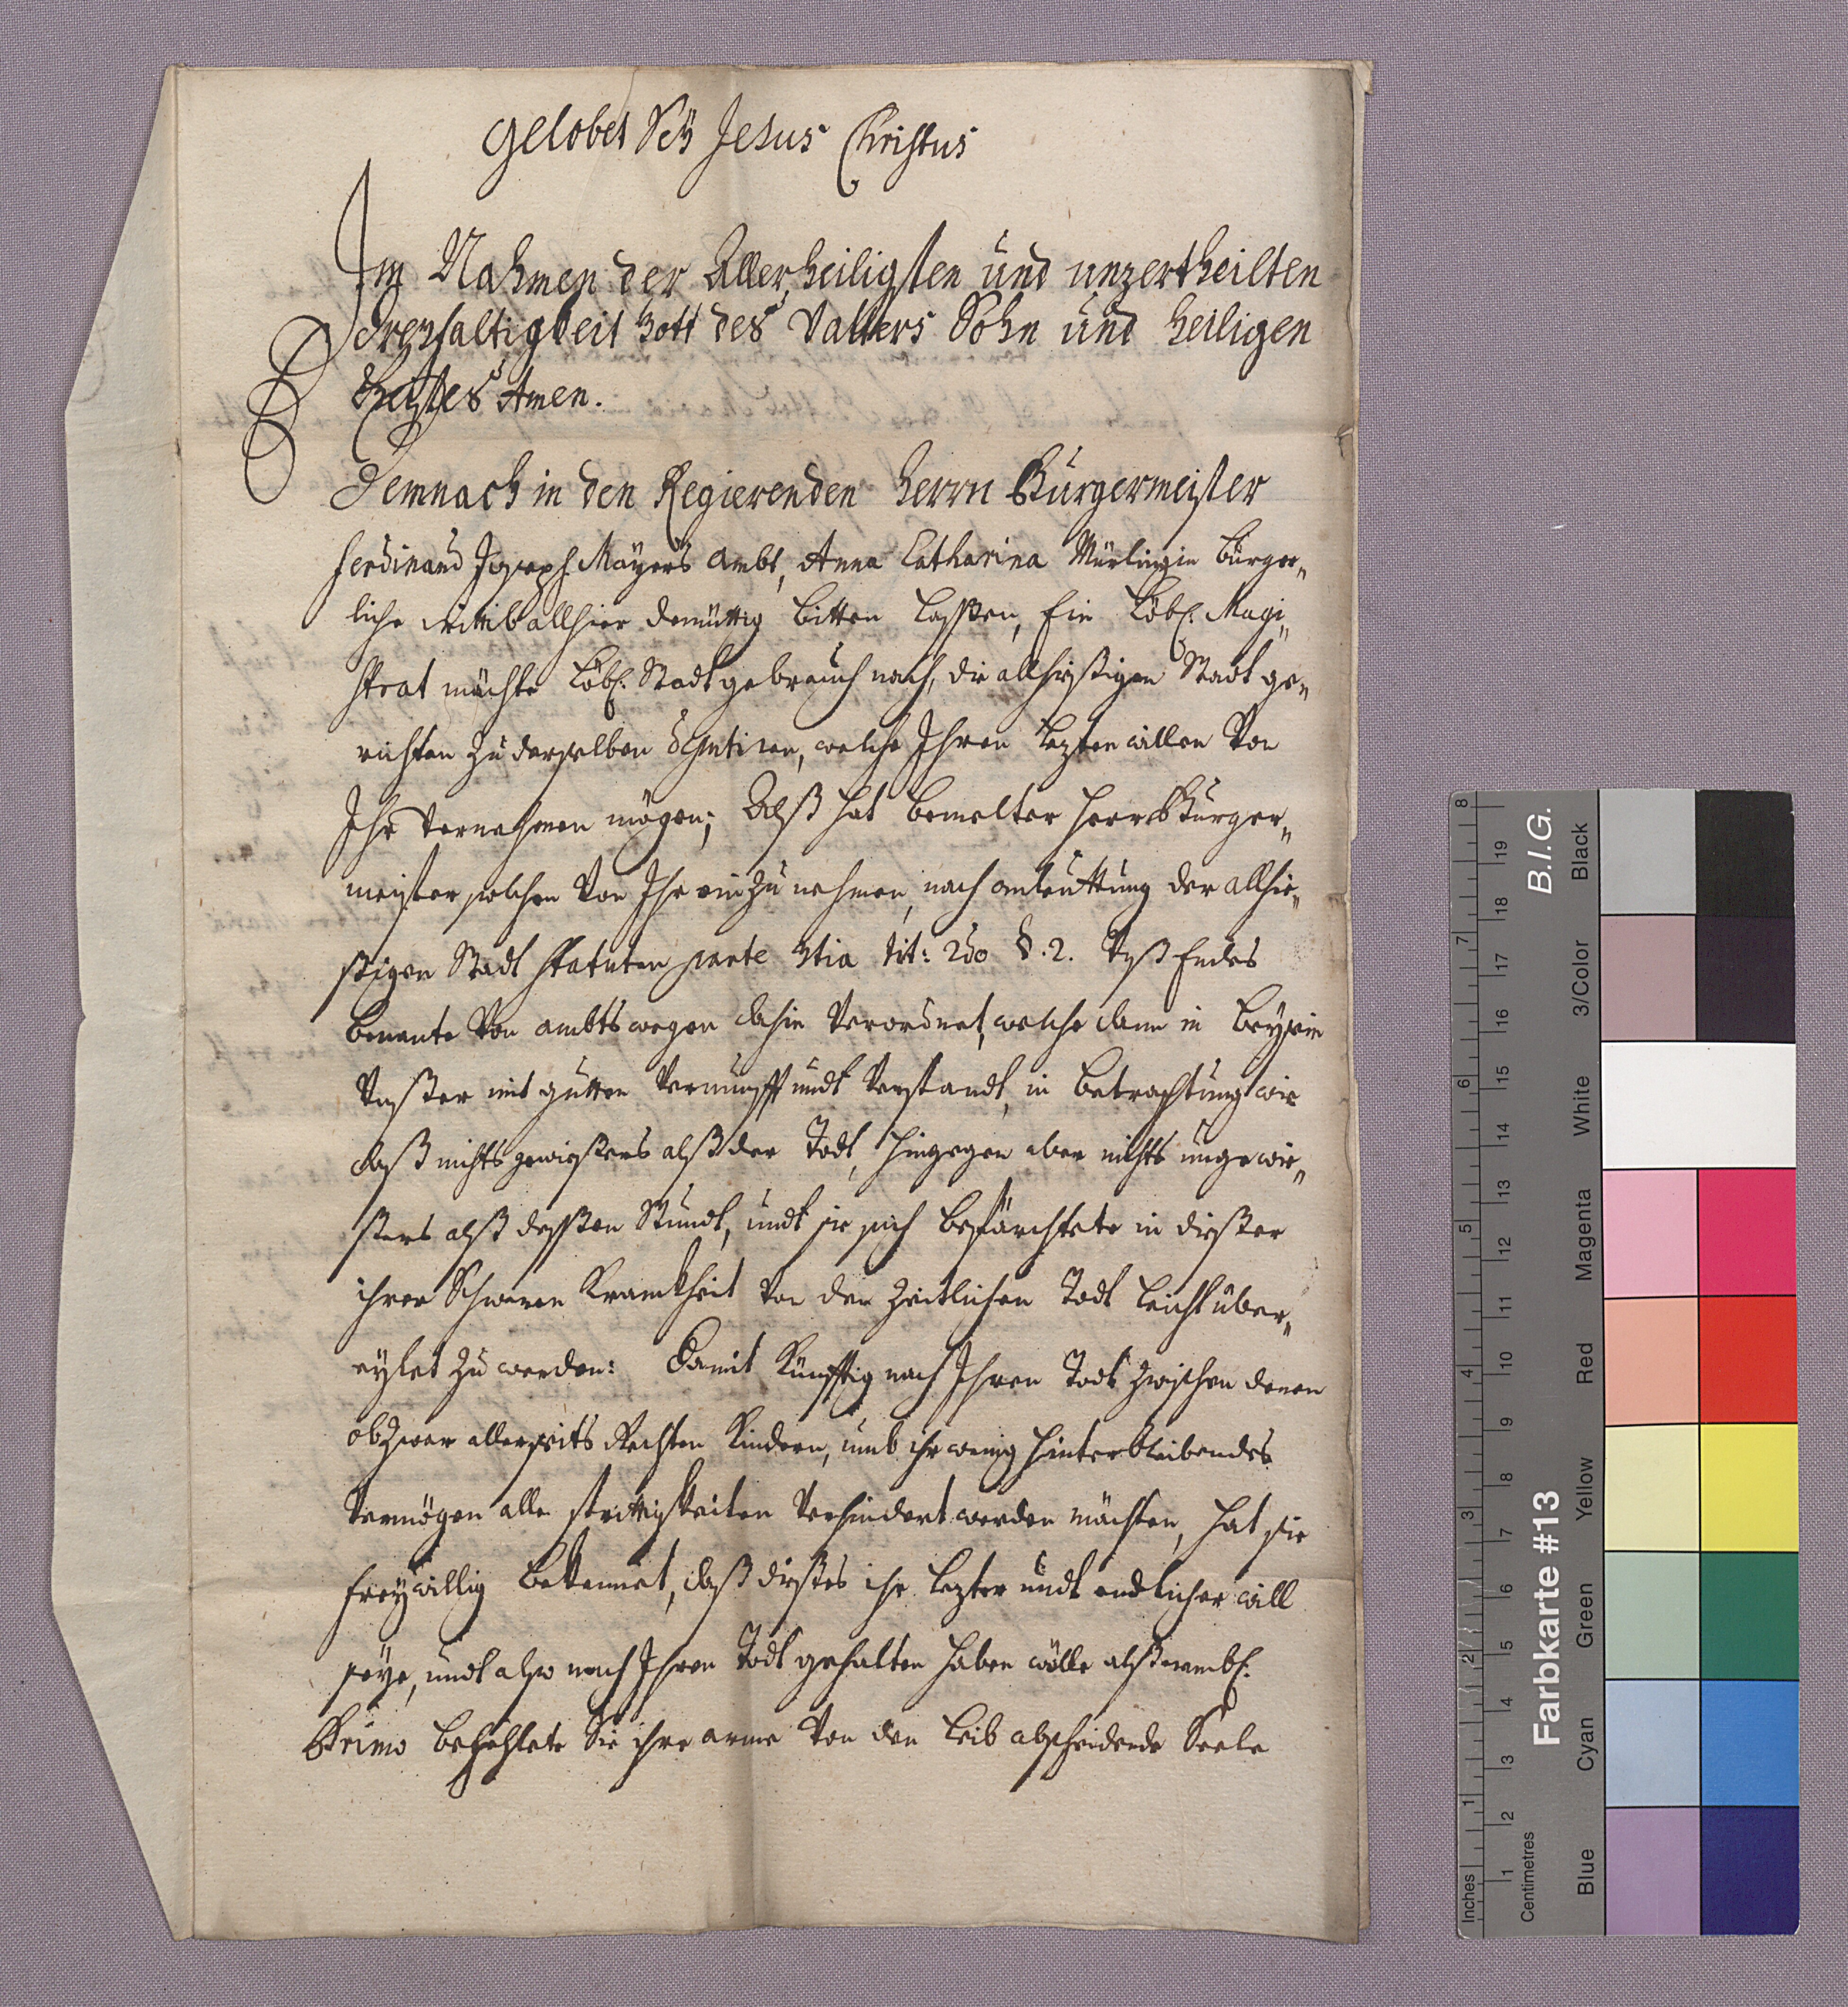 Gelobet Seÿ Jesus Christus
Im Nahmen der Allerheiligsten und unzertheilten
Dreyfaltigkeit Gott des Vatters Sohn und Heiligen
Geistes Amen.
Demnach in den Regierenden Herrn Bürgermeister
Ferdinand Joseph Mayers ambt, Anna Catharina Mürlingin bürger„
liche allhier demüttig bitten lassen, Ein Löbl. Magi„
strat möchte Löbl. Stadt gebrauch nach, die allhießigen Stadt ge„
richten zu derselben deputiren, welche Ihren lezten willen Von
Ihr Vernehmen mögen; Alß hat bemelter Herr Bürger„
meister solchen Von Ihr einzunehmen, nach anleuttung der allhie„
ßigen Stadt statuten parte 3tia tit: 2do §. 2. Endes
benante Von ambts wegen dahin Verordnet, welche dann in beysein
mit gutter Vernunfft undt Verstandt, in betrachtung wie
daß nichts gewießers alß der Todt, hingegen aber nichts ungewie„
ßers alß deßen Stundt, undt sie sich befürchtete in dießer
ihrer Schweren Kranckheit Von den Zeitlichen Todt leicht über„
eylet zu werden: Damit Künfftig nach Ihren Todt zwischen denen
obzwar allerseits Rechten Kindern, umb ihr wenig hinterbleibendes
Vermögen alle strittigkeiten Verhindert werden möchten, hat sie
freywillig bekennet, daß dießes ihr lezter undt endlicher will
seye, undt also nach Ihren Todt gehalten haben wölle alß nembl.
Primo befehlete Sie ihre arme Von den Leib abscheidende Seele
Inches
Centimetres
Farbkarte #13
B.I.G.
Blue
Cyan
Green
Yellow
Red
Magenta
White
3/Color
Black
1 2 3 4 5 6 7 8
1 2 3 4 5 6 7 8 9 10 11 12 13 14 15 16 17 18 19